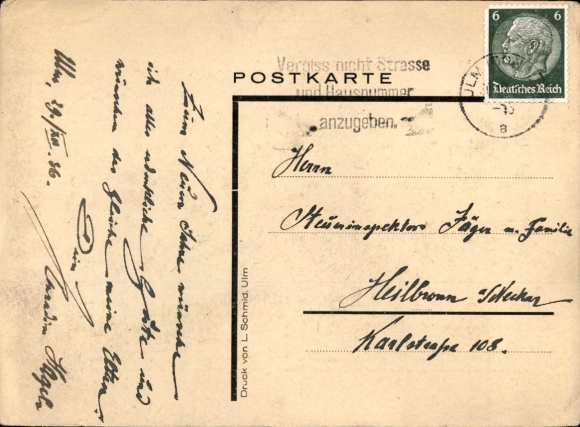 Ulm, 29./XII. 36.
Zum Neuen Jahre wünsche
ich alles erdenkliche Gute und
wünschen das gleiche meine Eltern.
Dein
Vergiss nicht Strasse
und Hausnummer
anzugeben.
POSTKARTE
6 6
Deutsches Reich
ULM
a
Herrn
Steuerinspektor Jäger u. Familie
Heilbronn a/Neckar
Karlstraße 108.
Druck von L. Schmid, Ulm